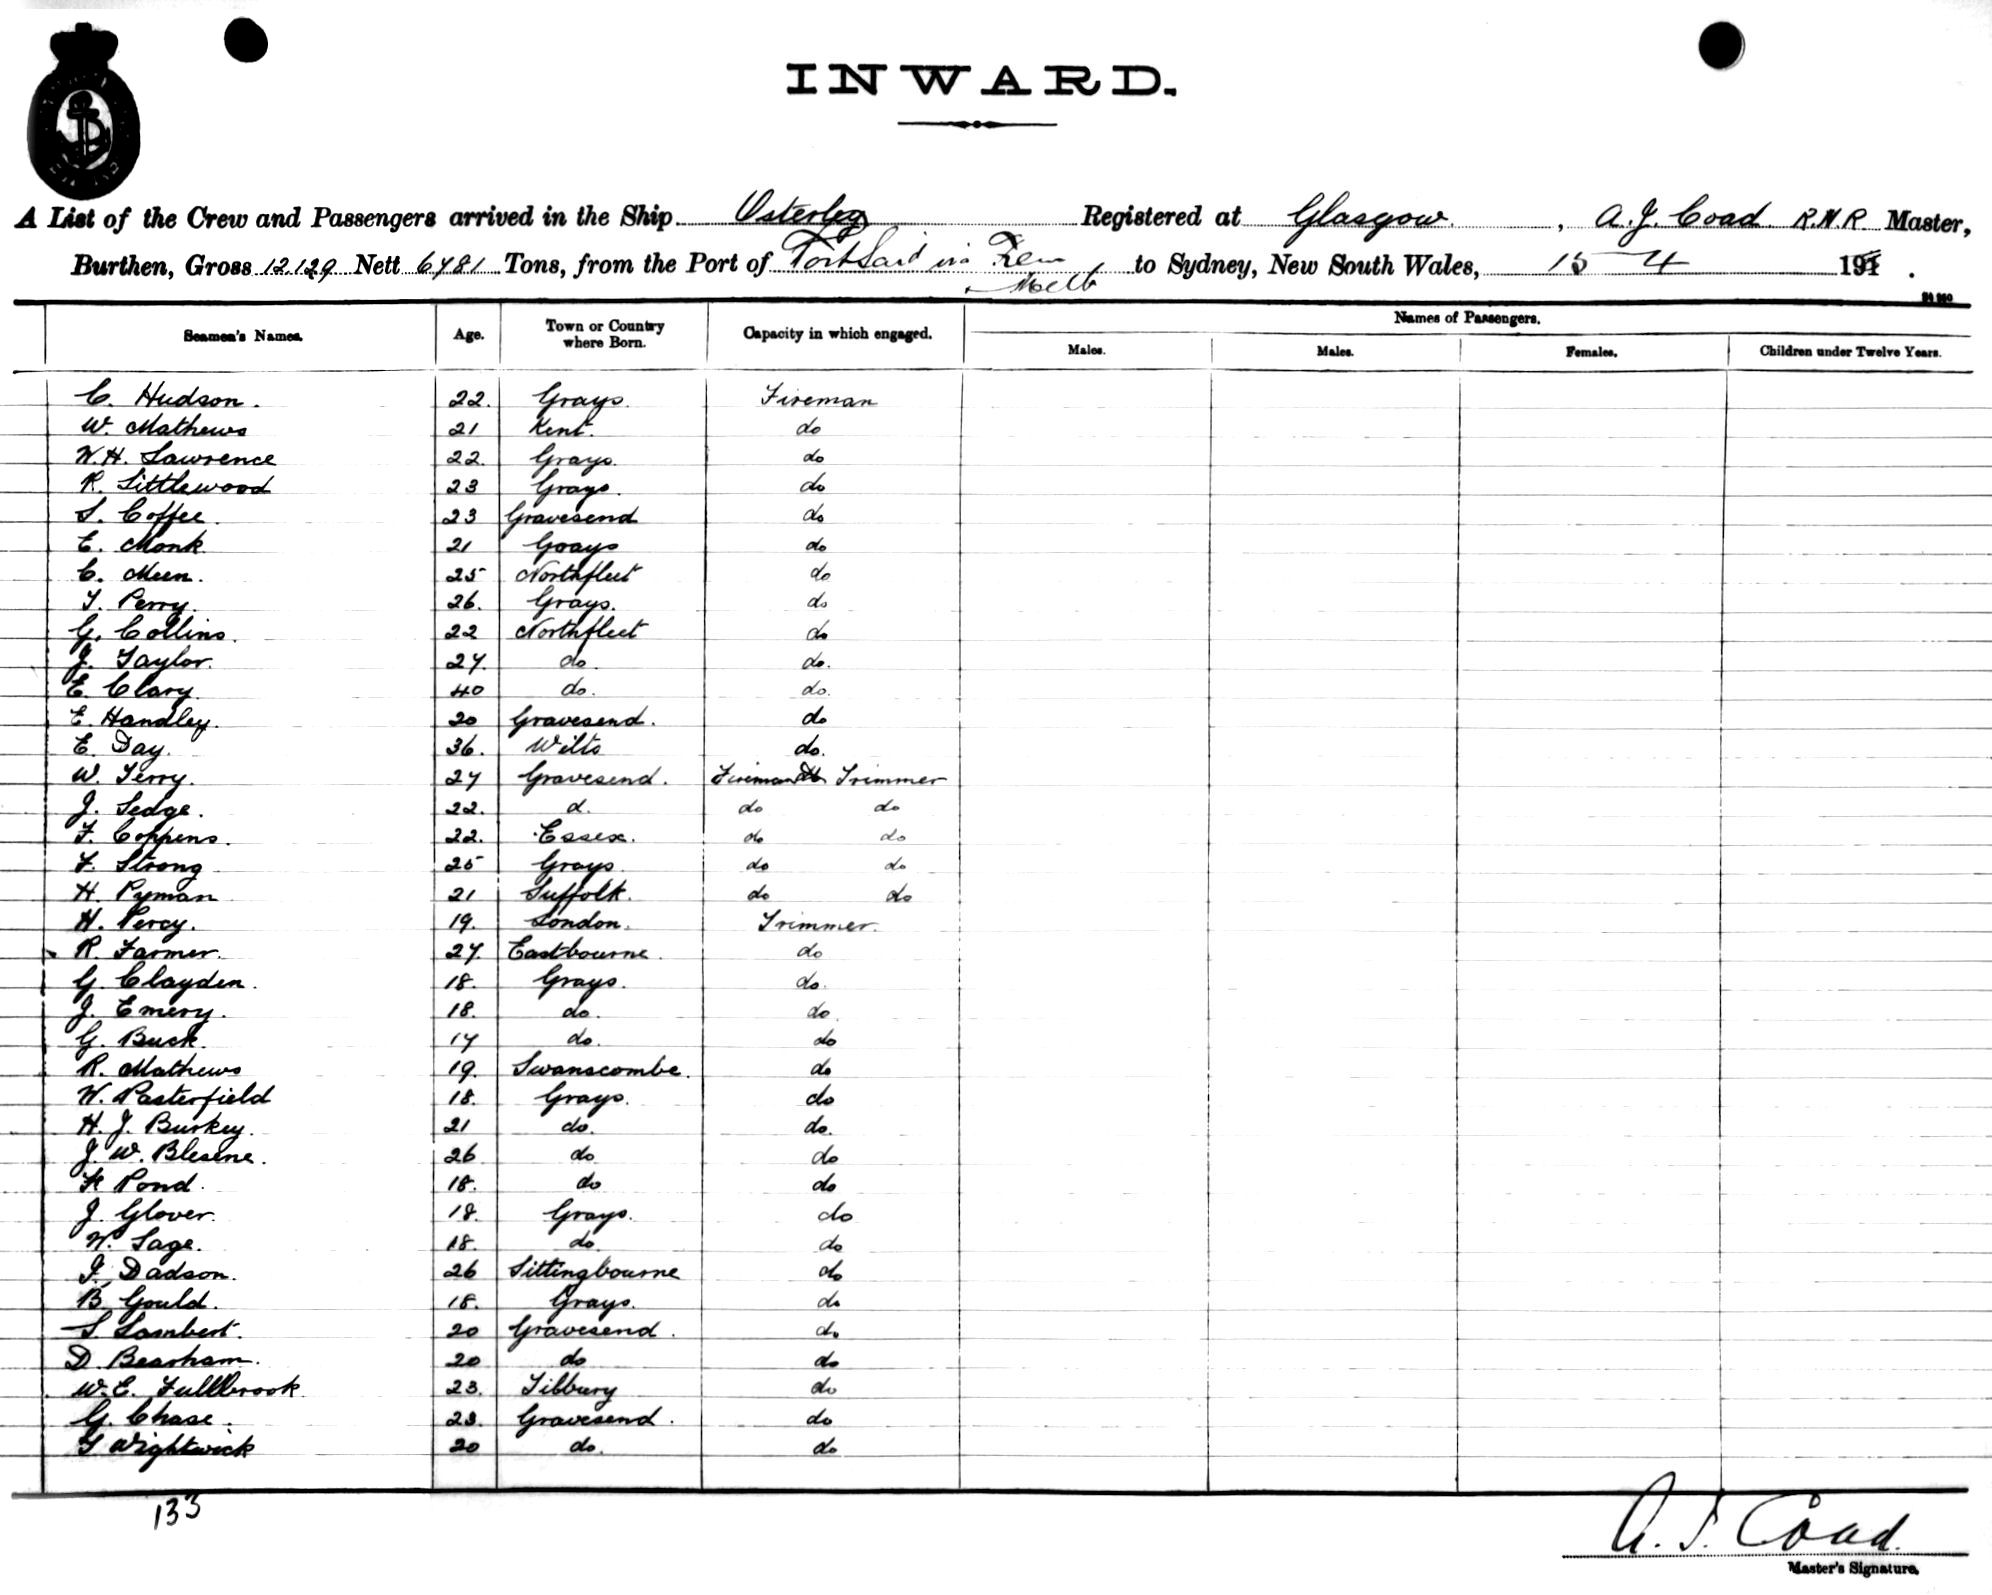 INWARD.
A List of the Crew and Passengers arrived in the Ship Osterley Registered at Glasgow. , A. J. Coad R.N.R Master,
Burthen, Gross 12129 Nett 6481 Tons, from the Port of Port Said via Frem to Sydney, New South Wales, 15 4 191 .
Melb
Names of Passengers.
Seamen's Names. Age. Town or Country where Born. Capacity in which engaged. Males. Males. Females. Children under Twelve Years.
C. Hudson. 22. Grays. Fireman
W. Mathews 21 Kent. do
W.H. Lawrence 22. Grays. do
R. Littlewood 23 Grays. do
S. Coffee. 23 Gravesend do
E. Monk 21 Grays do
C. Meen. 25 Northfleet do
T. Perry. 26. Grays. do
G. Collins. 22 Northfleet do
J. Taylor. 27. do. do.
E. Clary. 40 do. do.
E. Handley. 20 Gravesend. do
E. Day. 36. Wilts do.
W. Terry. 27 Gravesend. Fireman & Trimmer
J. Sedge. 22. d. do do
F. Coppens. 22. Essex. do do
F. Strong 25 Grays do do
H. Pyman 21 Suffolk. do do
H. Percy. 19. London. Trimmer.
R. Farmer. 27. Eastbourne. do
G. Clayden. 18. Grays. do.
J. Emery. 18. do. do.
G. Buck. 17 do. do
R. Mathews 19. Swanscombe. do
W. Pasterfield 18. Grays. do
H. J. Burkey. 21 do. do.
J. W. Blesene. 26 do do
F. Pond. 18. do do
J. Glover. 18. Grays. do
W. Sage. 18. do. do
J. Dadson. 26 Sittingbourne do
B. Gould. 18. Grays. do
S. Lambert. 20 Gravesend. do
D. Bearham. 20 do do
W.E. Fullbrook. 23. Tilbury do
G. Chase. 23. Gravesend. do
G Wightwick 20 do. do
133
A. J. Coad.
Master's Signature.